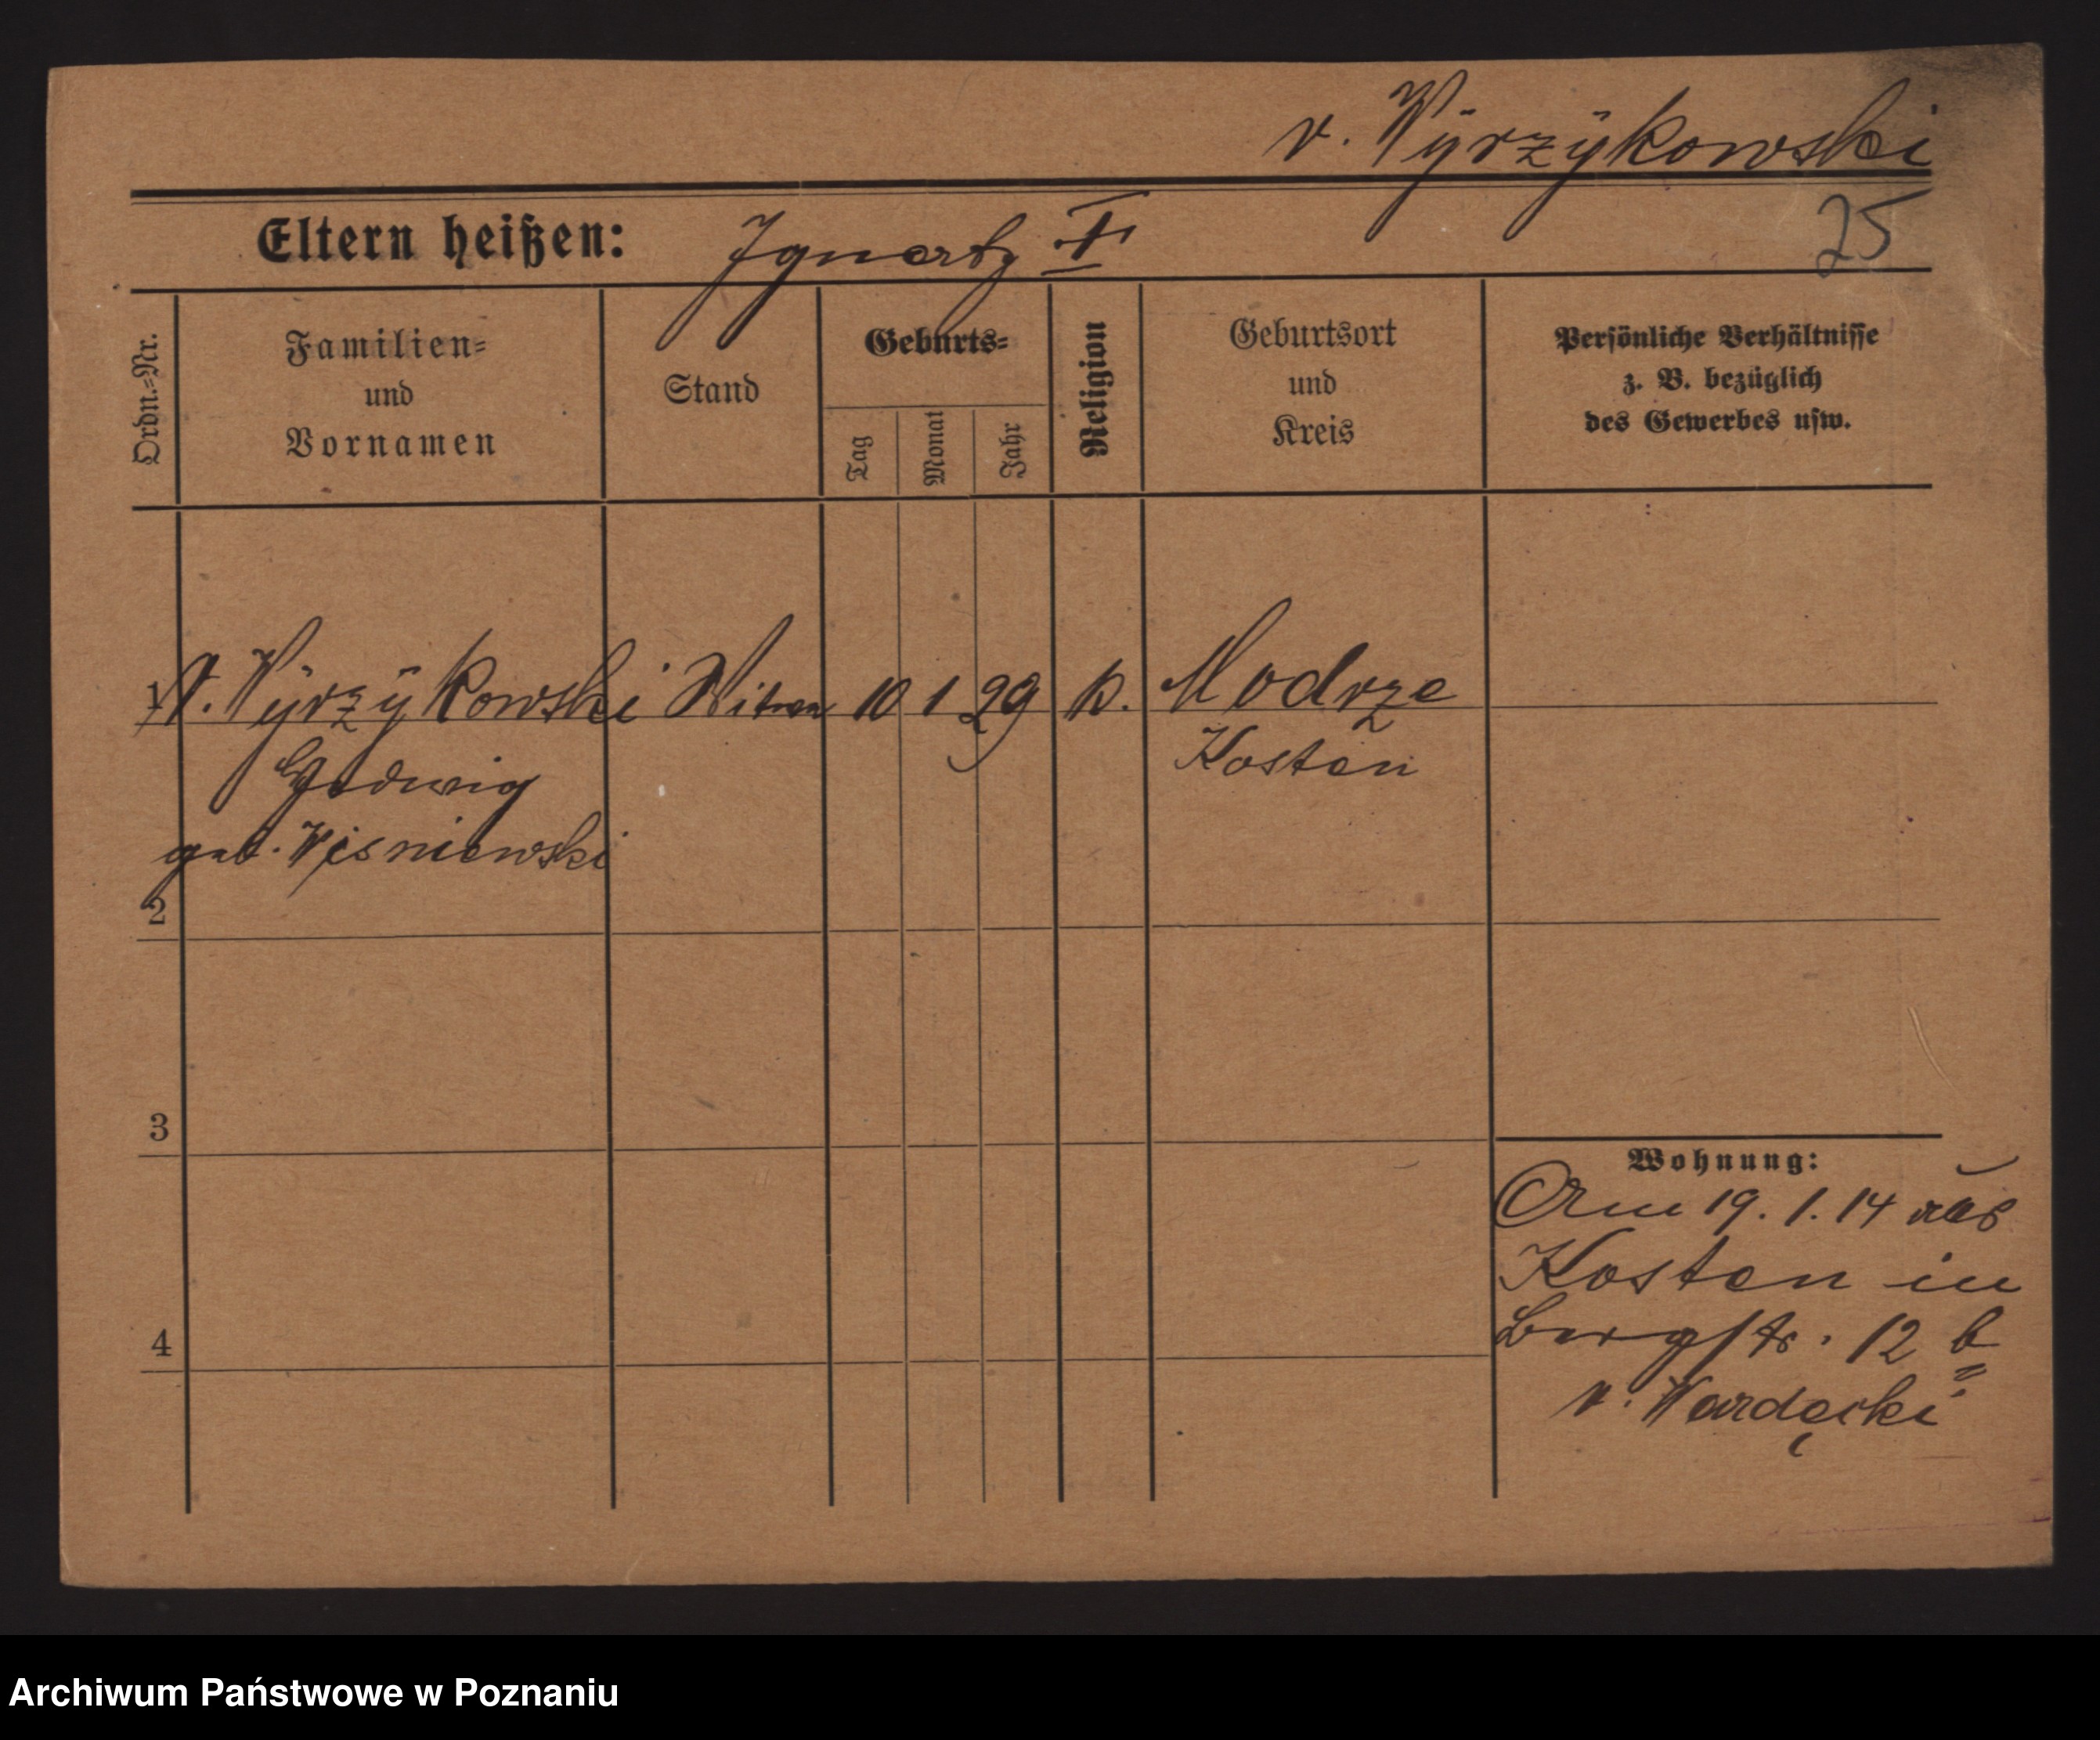 v. Wyrzykowski
Eltern heißen: Ignatz †
25
Ordn.=Nr.
Familien=
und
Vornamen
Stand
Geburts=
Tag
Monat
Jahr
Religion
Geburtsort
und
Kreis
Persönliche Verhältnisse
z. B. bezüglich
des Gewerbes usw.
1 v. Wyrzykowski Witwe 10 1 29 k. Modrze
Hedwig Kosten
geb. Wisniewski
2
3
4
Wohnung:
Am 19. 1. 14 aus
Kosten in
Bergstr. 12 b
v.
Archiwum Państwowe w Poznaniu